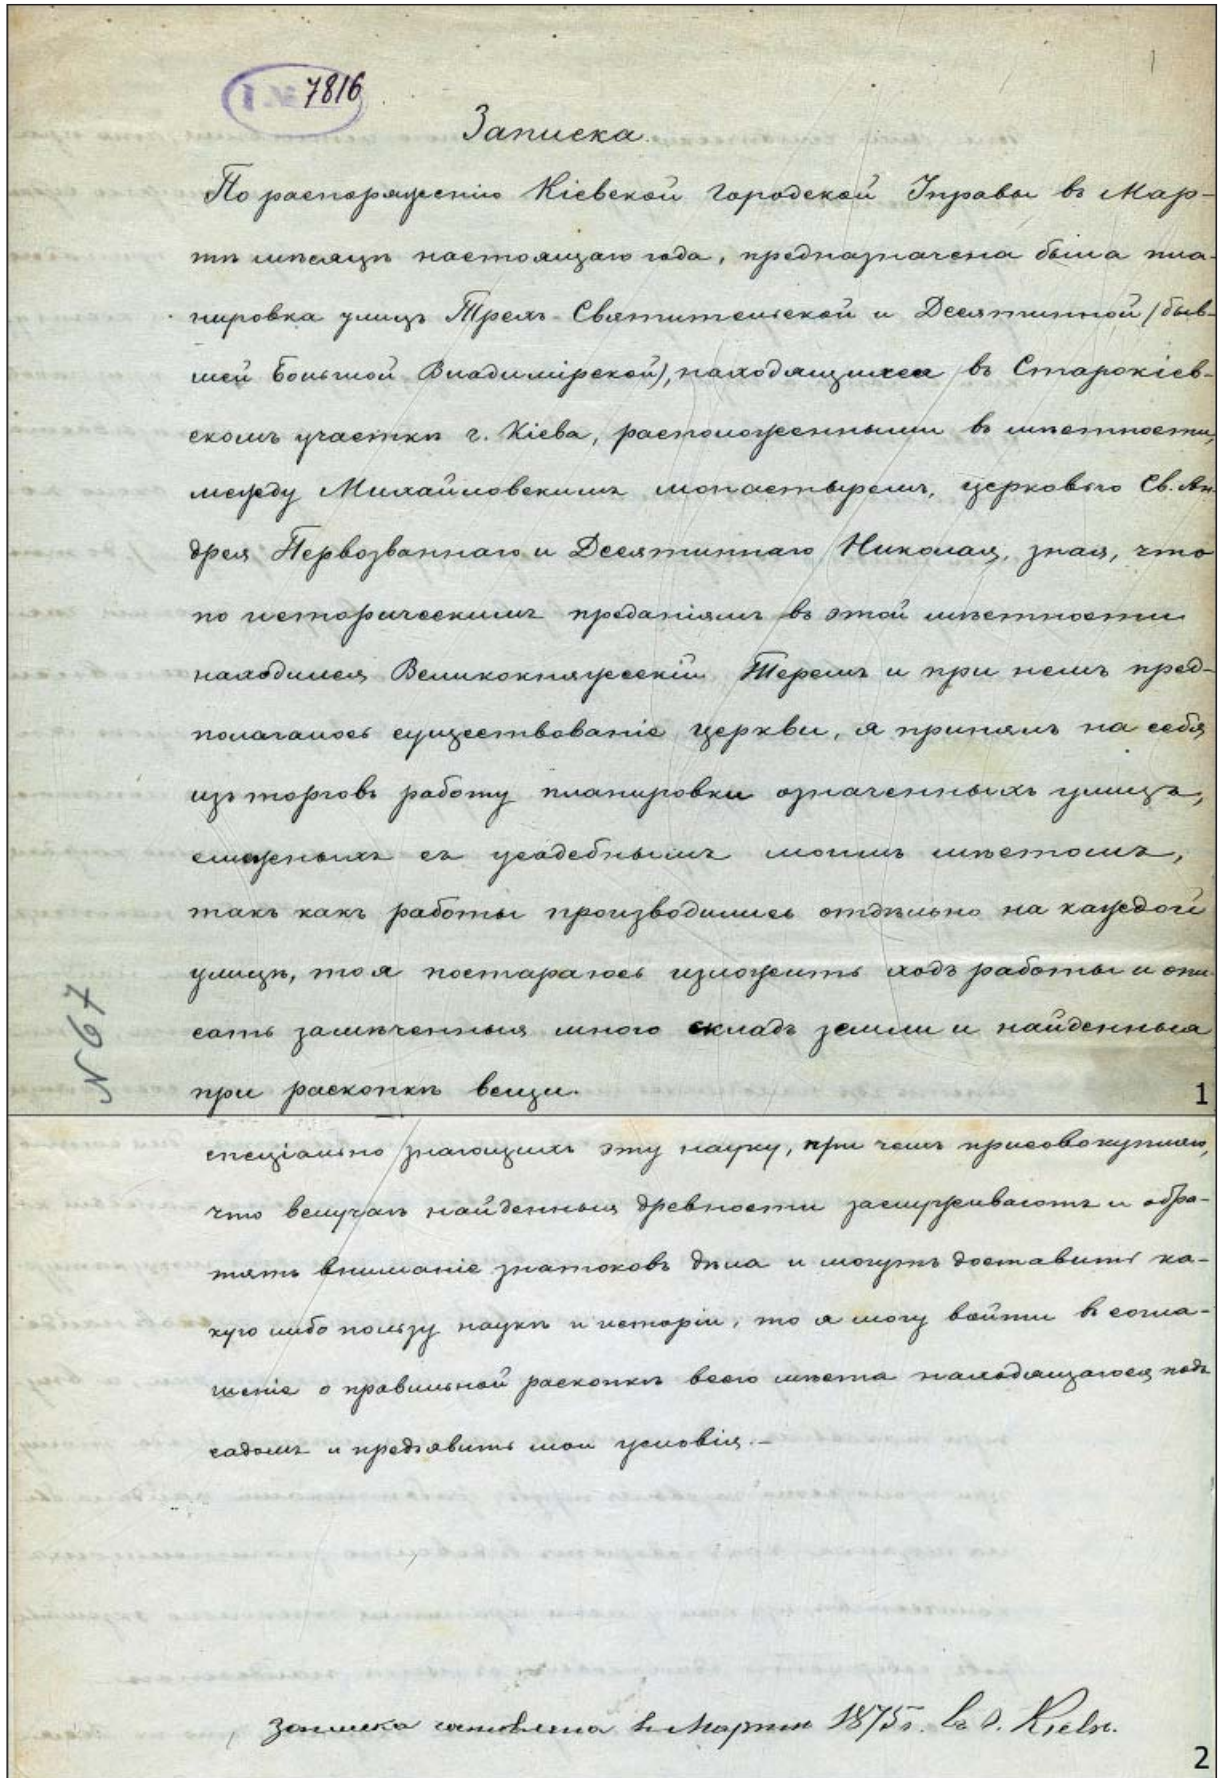 I № 7816
1
Записка.
По распоряженію Кіевской Городской Управы въ Мар-
тѣ мѣсяцѣ настоящаго года, предназначена была пла-
нировка улицъ Трехъ-Святительской и Десятинной /быв-
шей Большой Владимірской), находящихся въ Старокіев-
скомъ участкѣ г. Кіева, расположенными въ мѣстности,
между Михайловскимъ монастыремъ, церковью Св. Ан-
дрея Первозваннаго и Десятиннаго Николая, зная, что
по историческимъ преданіямъ въ этой мѣстности
находился Великокняжескій Теремъ и при немъ пред-
полагалось существованіе церкви, я принялъ на себя
изъ торговъ работу планировки означенныхъ улицъ,
смежныхъ съ усадебнымъ моимъ мѣстомъ,
такъ какъ работы производились отдѣльно на каждой
улицѣ, то я постараюсь изложить ходъ работы и опи-
сать замѣченныя мною складъ земли и найденныя
при раскопкѣ вещи.
N 67
1
спеціально знающихъ эту науку, при чемъ присовокупляю,
что вслучаѣ найденныя древности заслуживаютъ и обра-
тятъ вниманіе знатоковъ дѣла и могутъ доставить ка-
кую либо пользу наукѣ и исторіи, то я могу войти въ согла-
шеніе о правильной раскопкѣ всего мѣста находящагося подъ
садомъ и предъявить мои условія.-
Записка составлена въ Мартѣ 1875 г. въ Кіевѣ.
2